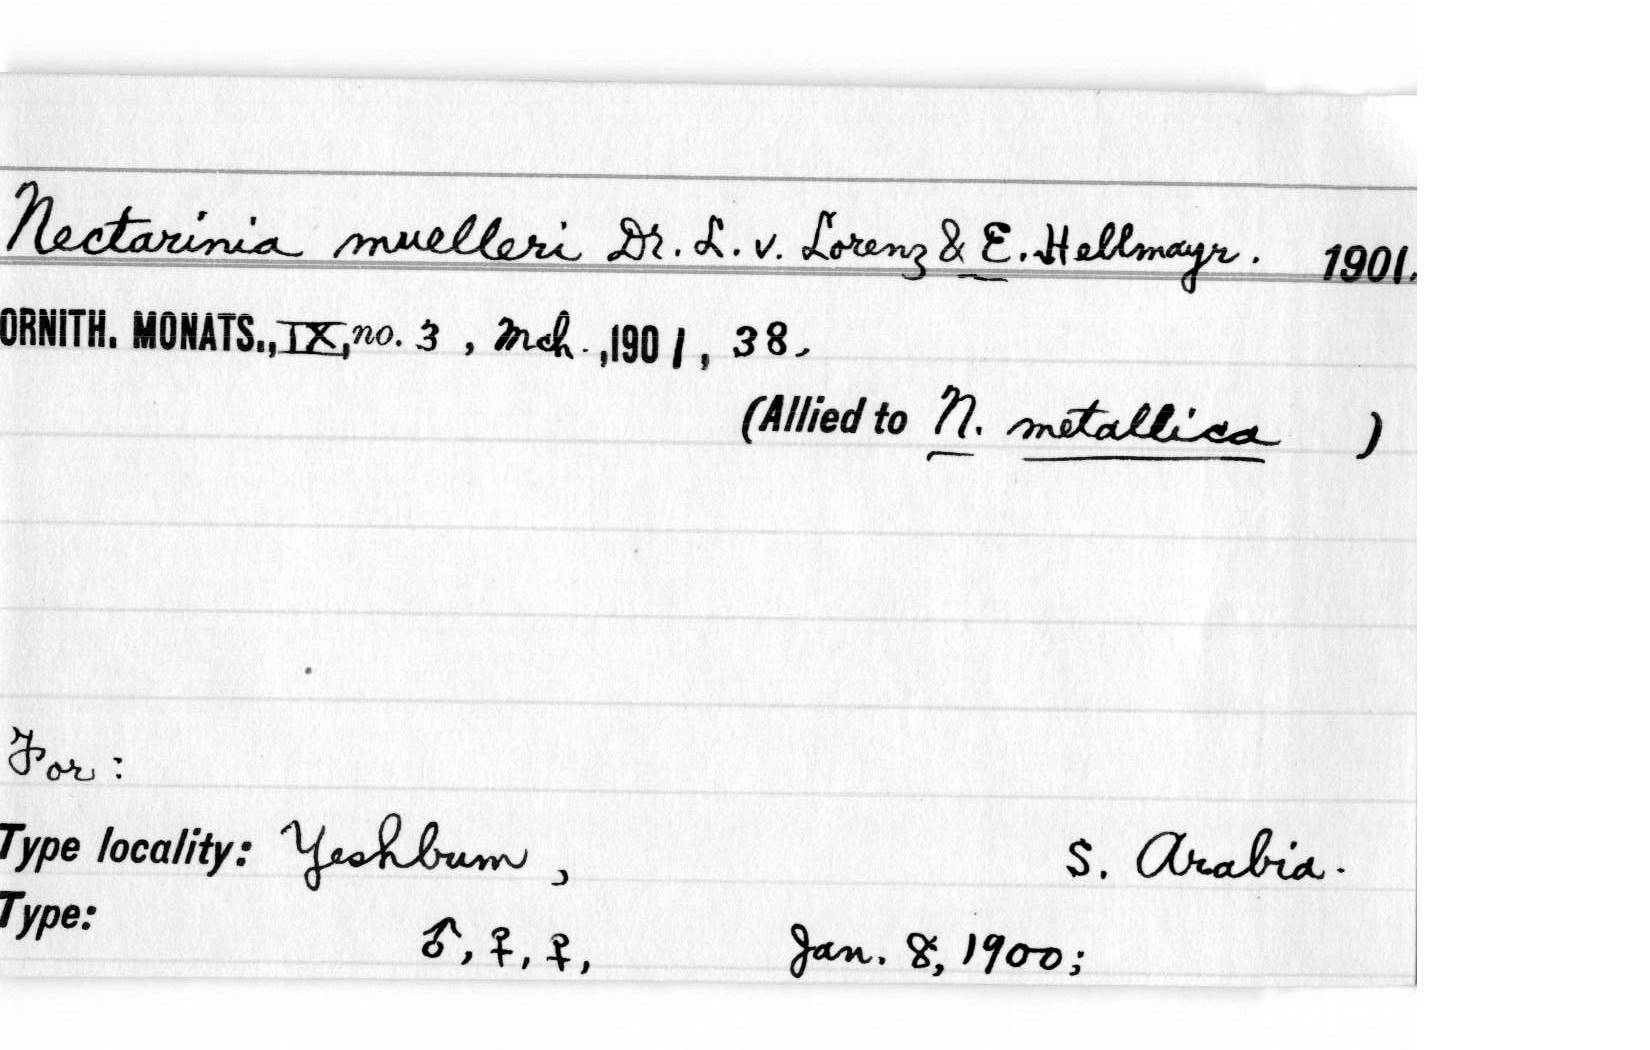 Nectarinia muelleri Dr. L. v. Lorenz & E. Hellmayr. 1901.
ORNITH. MONATS., IX, no. 3, Mch., 1901, 38.
(Allied to N. metallica )
For:
Type locality: Yeshbum, S. Arabia.
Type:
♂, ♀, ♀, Jan. 8, 1900;